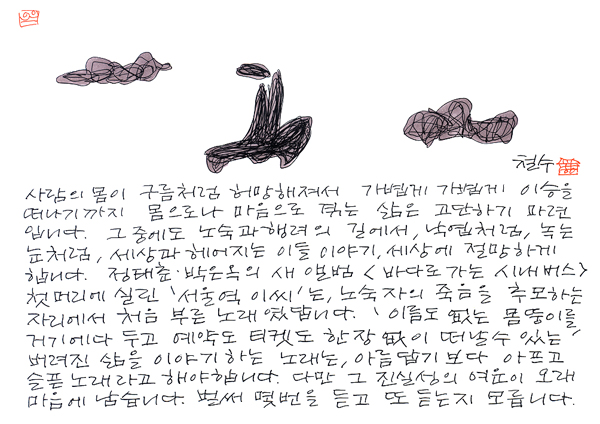 철수
사람의 몸이 구름처럼 허망해져서 가볍게 가볍게 이승을
떠나기까지 몸으로나 마음으로 겪는 삶은 고단하기 마련
입니다. 그중에도 노숙과 행려의 길에서, 낙엽처럼, 녹는
눈처럼, 세상과 헤어지는 이들 이야기, 세상에 절망하게
합니다. 정태춘·박은옥의 새 앨범 <바다로 가는 시내버스>
첫머리에 실린 '서울역 이씨'는, 노숙자의 죽음을 추모하는
자리에서 처음 부른 노래였답니다. '이름도 없는 몸뚱이를
거기에다 두고 예약도 티켓도 한장 없이 떠날 수 있는'
버려진 삶을 이야기 하는 노래는, 아름답기 보다 아프고
슬픈 노래라고 해야합니다. 다만 그 진실성의 여운이 오래
마음에 남습니다. 벌써 몇번을 듣고 또 듣는지 모릅니다.